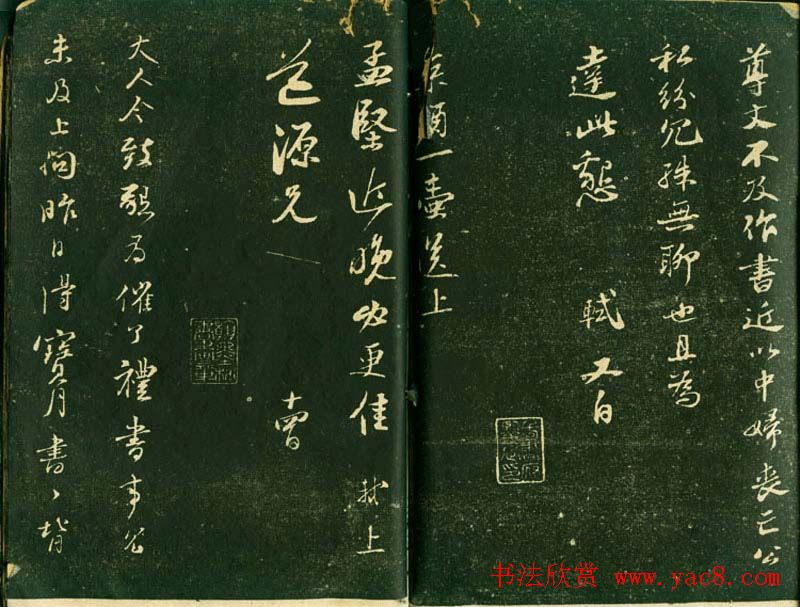 尊丈不及作書近以中婦喪亡公
私紛冗殊無聊也且為
達此懇 軾又白
酒一壺送上
孟堅近晚必更佳 軾上
道源兄 十四
大人令致懇為催了禮書事冗
未及上問昨日得寶月書書背
书法欣赏 www.yac8.com